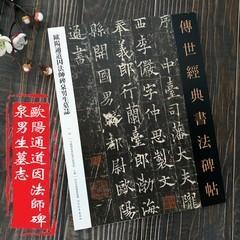 傳世經典書法碑帖
中臺司藩大夫隴
西李儼字仲思製文
奉義郎行蘭臺郎渤海
縣開國男騎都尉歐陽
通書
歐陽通道因法師碑泉男生墓誌
歐陽通道因法師碑
泉男生墓志